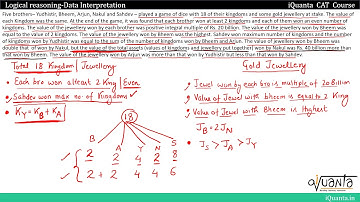 Logical reasoning-Data Interpretation
iQuanta CAT Course
Five brothers–Yudhistir, Bheem, Arjun, Nakul and Sahdev – played a game of dice with 18 of their kingdoms and some gold jewellery at stake. The value of
each Kingdom was the same. At the end of the game, it was found that each brother won at least 2 kingdoms and each of them won an even number of
kingdoms. The value of the jewellery won by each brother was positive integral multiple of Rs. 20 billion. The value of the jewellery won by Bheem was
equal to the value of 2 kingdoms. The value of the jewellery won by Bheem was the highest. Sahdev won maximum number of kingdoms and the number
of kingdoms won by Yudhistir was equal to the sum of the number of kingdoms won by Bheem and Arjun. The value of jewellery won by Bheem was
double that of won by Nakul, but the value of the total assets (values of kingdoms and jewellery put together) won by Nakul was Rs. 40 billion more
than that won by Bheem. The value of the jewellery won by Arjun was more than that won by Yudhistir but less than that won by Sahdev.
Total 18 Kingdom
Jewellery
Gold Jewellery
Each bro won atleast 2 King
Even
Sahdev won max no. of Kingdoms
KY = KB + KA
18
B A Y N S
2 2 4 2 8
2 2 4 4 6
Jewel won by each bro is multiple of 20 Billion
Value of Jewel with bheem is equal to 2 King
Value of Jewel with Bheem is Highest
JB = 2JN
JS > JA > JY
iQuanta
iQuanta.in